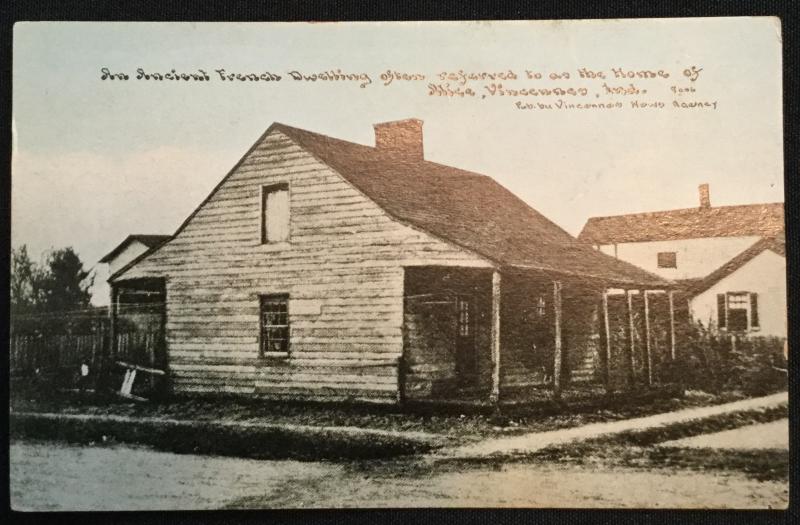 An Ancient French Dwelling often referred to as the Home of
Alice, Vincennes, Ind.
Pub. by Vincennes News Agency